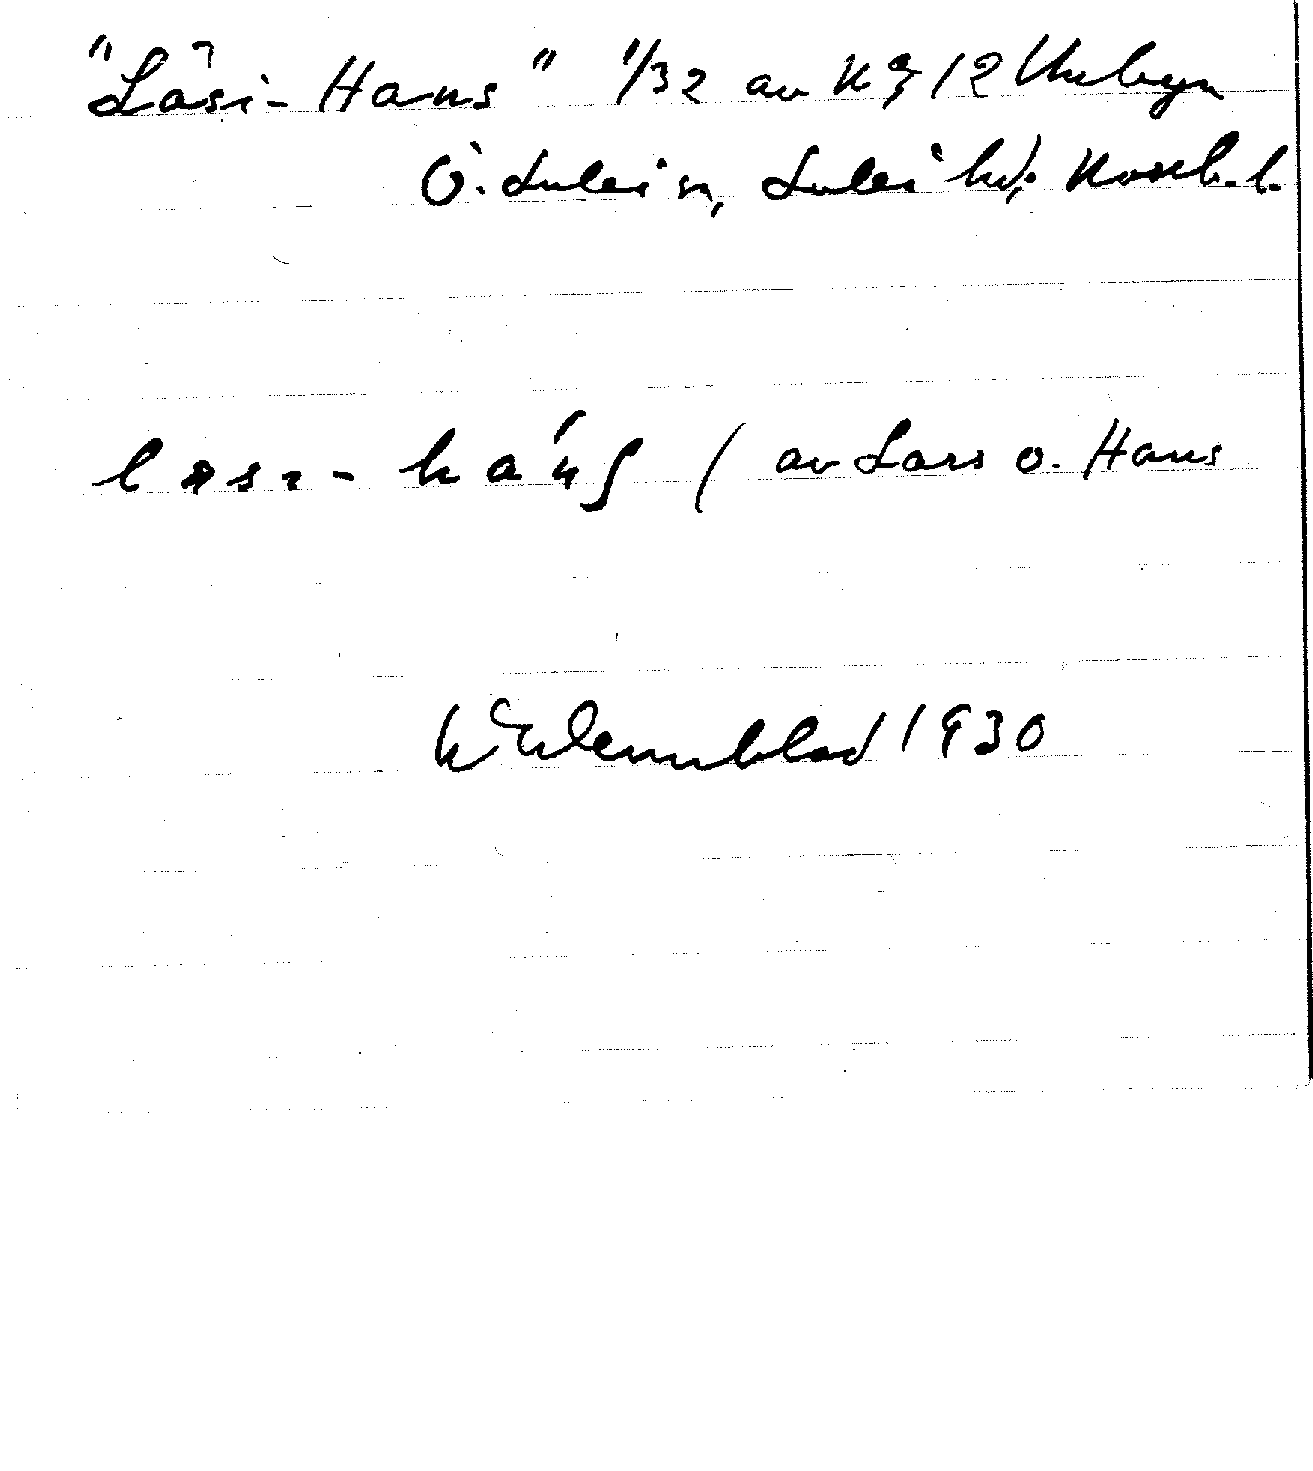 "Låsi-Hans" 1/32 av N:o 12 Unbyn
Ö. Luleå sn, Luleå hd, Norrb. l.
lasɩ-hánʃ (av Lars o. Hans
Wennblad 1930